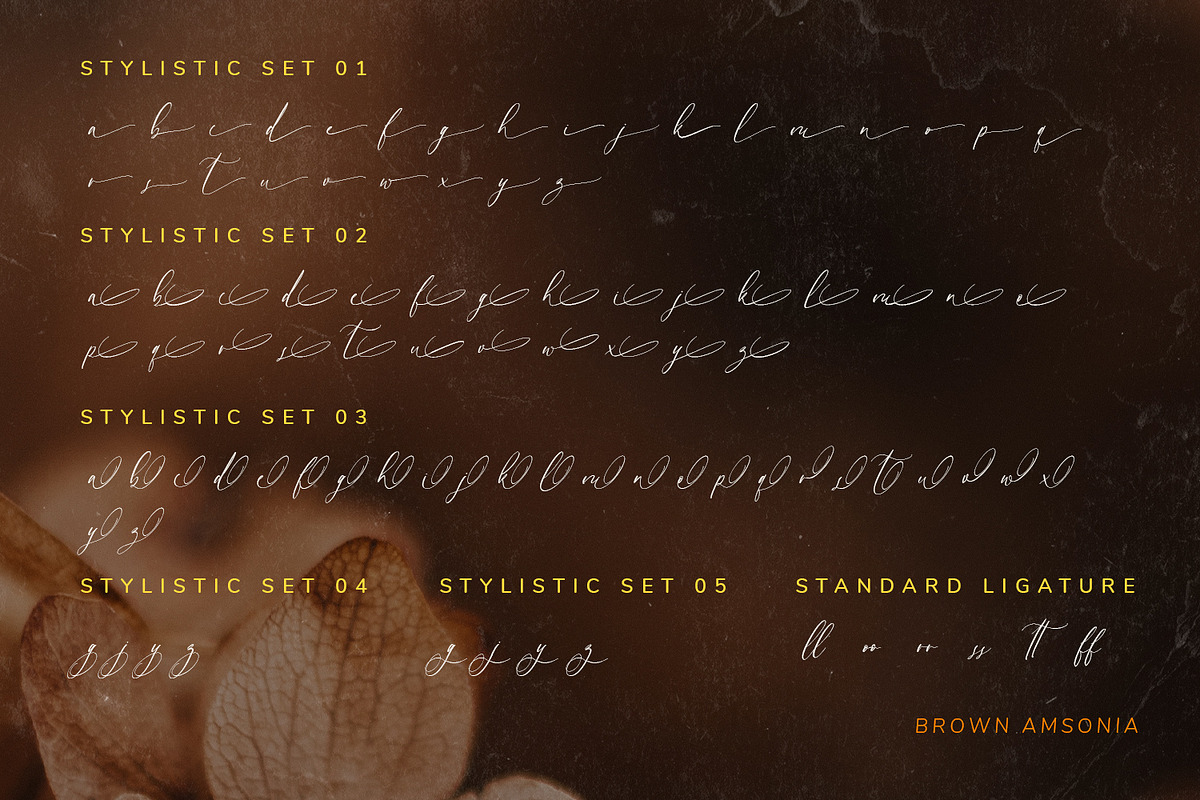 STYLISTIC SET 01
a b c d e f g h i j k l m n o p q
r s t u v w x y z
STYLISTIC SET 02
a b c d e f g h i j k l m n o
p q r s t u v w x y z
STYLISTIC SET 03
a b c d e f g h i j k l m n o p q r s t u v w x
y z
STYLISTIC SET 04 STYLISTIC SET 05 STANDARD LIGATURE
g j y z g j y z ll oo rr ss tt ff
BROWN AMSONIA